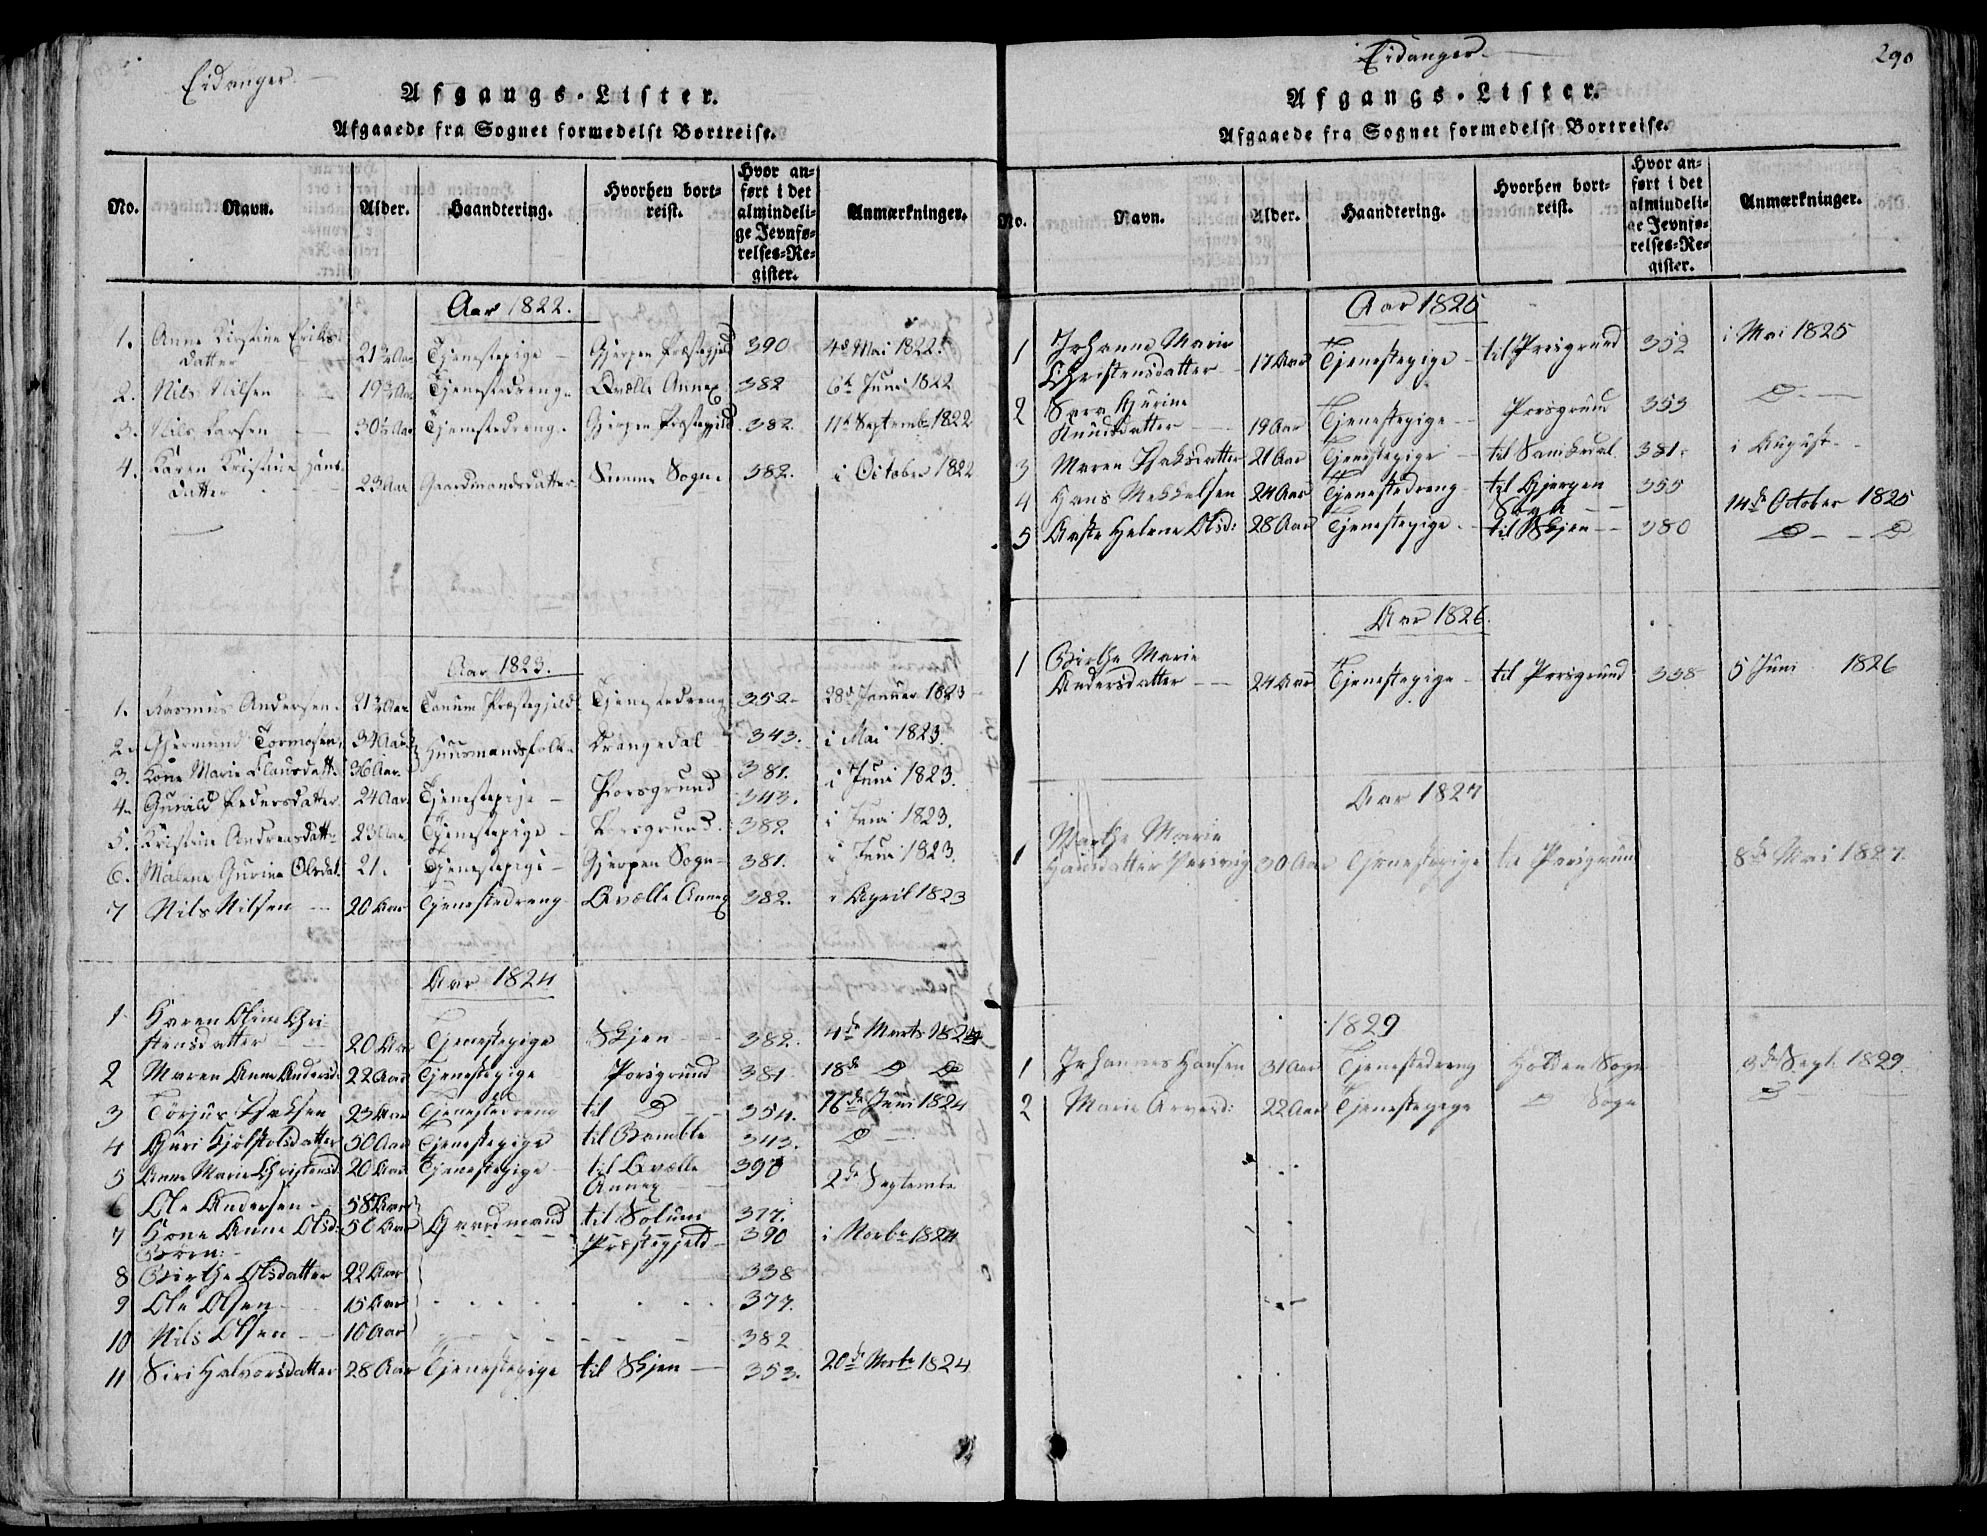 Eidanger.
Afgangs-Lister.
Afgaaede fra Sognet formedelst Bortreise.
No. Navn. Alder. Haandtering. Hvorhen bortreist. Hvor anført i det almindelige Jevnførelses-Register. Anmærkninger.
Aar 1822.
1. Anne Kirstine Eriksdatter 21 Aar Tjenestepige Gjerpen Præstegjeld 390 4d Mai 1822.
2. Nils Nilsen 19 Aar Tjenestedreng Qvælle Annex 382 6te Juni 1822
3. Nils Larsen 30½ Aar Tjenestedreng Gjerpen Præstegjeld 382. 11te Septembr 1822
4. Karen Kristine Hansdatter 23 Aar Gaardmandsdatter Sogn 382. i October 1822
Aar 1823.
1. Rasmus Andersen 21 Aar Tanum Præstegjeld Tjenestedreng 352. 28d Januar 1823
2. Gjermund Tormosen, 34 Aar Huusmandsfolk Drangedal 343. i Mai 1823.
3. Kone Marie Clausdatt. 36 Aar. 381.
4. Gunild Pedersdatter 24 Aar Tjenestepige Porsgrund 343. i Juni 1823.
5. Kristine Andreasdatt. 23 Aar Tjenestepige Porsgrund. 382. i Juni 1823.
6. Malene Gurine Olsdat. 21. Tjenestepige Gjerpen Sogn 381. i Juni 1823.
7 Nils Nilsen 20 Aar Tjenestedreng Qvælle Annex 382. i April 1823
Aar 1824
1 Karen Oline Christensdatter 20 Aar Tjenestepige Skjen 382. 4de Marts 1824
2 Maren Anne Andersd: 22 Aar Tjenestepige Porsgrund 381 18de D D
3 Torjus Isaksen 23 Aar Tjenestedreng til D 354. 16de Juni 1824
4 Guri Kjølstolsdatter 50 Aar Tjenestepige til Bamble 343. D
5 Anne Marie Christensd. 20 Aar Tjenestepige til Qvælle Annex 390 2de Septembr
6 Ole Andersen 58 Aar Gaardmand til Solum Præstegjeld 377.
7 Kone Anne Olsd: 50 Aar 390 i Novbr 1824
Børn:
8 Birthe Olsdatter 22 Aar 338
9 Ole Olsen 15 Aar 377.
10 Nils Olsen 10 Aar 382
11 Siri Halvorsdatter 28 Aar Tjenestepige til Skjen 353. 20de Novbr 1824
Eidanger.
290
Afgangs-Lister.
Afgaaede fra Sognet formedelst Bortreise.
No. Navn. Alder. Haandtering. Hvorhen bortreist. Hvor anført i det almindelige Jevnførelses-Register. Anmærkninger.
Aar 1825
1 Johanne Marie Christensdatter 17 Aar Tjenestepige til Porsgrund 352 i Mai 1825
2 Sara Gurine Knudsdatter 19 Aar Tjenestepige Porsgrund 353 D
3 Maren Isaksdatter 21 Aar Tjenestepige til Sannikedal 381. i August
4 Hans Mekkelsen 24 Aar Tjenestedreng til Gjerpen Sogn 355 14de October 1825
5 Aaste Helene Olsd: 28 Aar Tjenestepige til Skjen 380 D D
Aar 1826.
1 Birthe Marie Andersdatter 24 Aar Tjenestepige til Porsgrund 338 5 Juni 1826
Aar 1827
1 Marthe Marie Hansdatter 30 Aar Tjenestepige til Porsgrund 8de Mai 1827.
1829
1 Johannes Hansen 31 Aar Tjenestedreng Holden Sogn 3de Sept. 1829.
2 Marie 22 Aar Tjenestepige D Sogn D